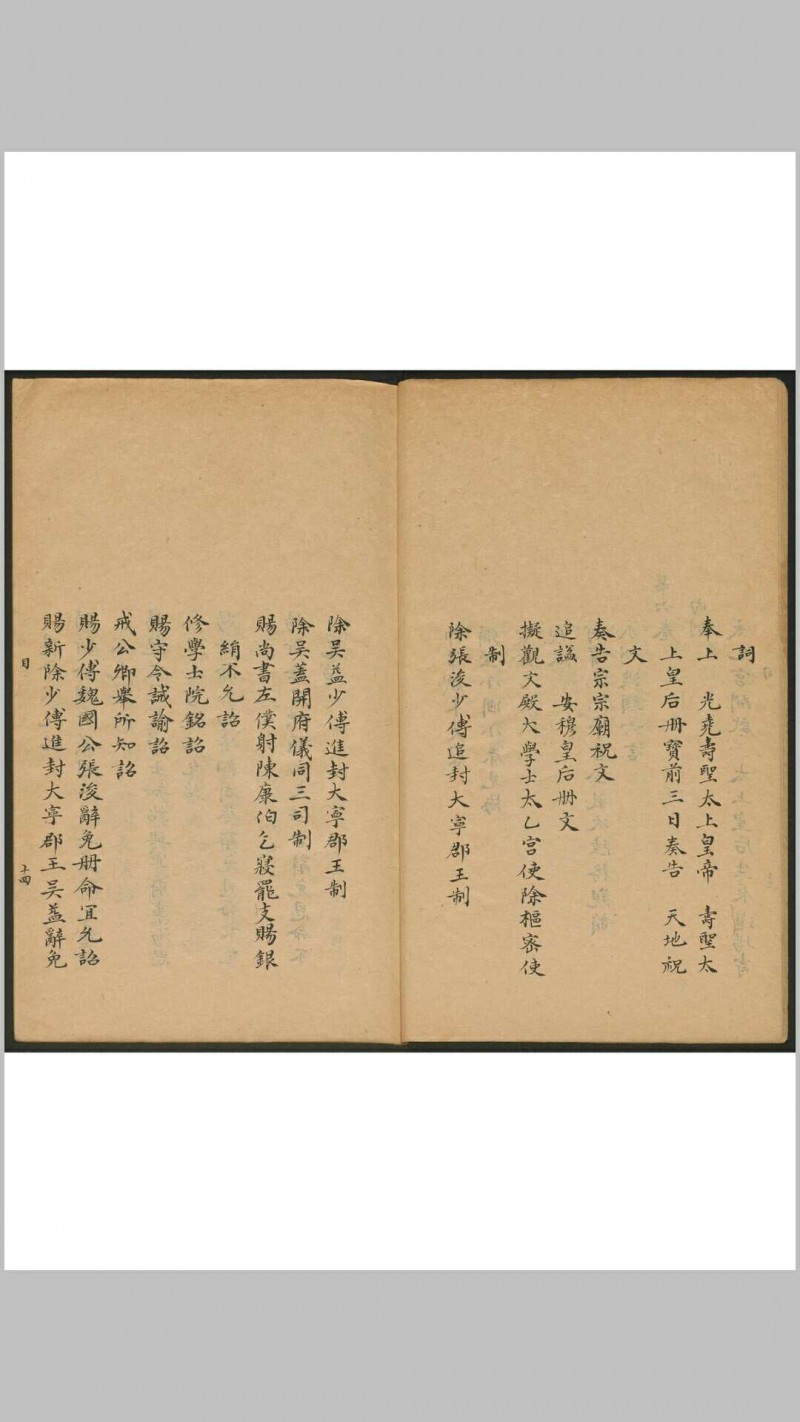 詞
奉上　光堯壽聖太上皇帝　壽聖太
上皇后册寶前三日奏告　天地祝
文
奏告宗宗廟祝文
追謚　安穆皇后册文
擬觀文殿大學士太乙宮使除樞密使
制
除張浚少傅追封大寧郡王制
除吳益少傅進封大寧郡王制
除吳蓋開府儀同三司制
賜尚書左僕射陳康伯乞寢罷支賜銀
絹不允詔
修學士院銘詔
賜守令誡諭詔
戒公卿舉所知詔
賜少傅魏國公張浚辭免册命宜允詔
賜新除少傅進封大寧郡王吳益辭免
目
十四